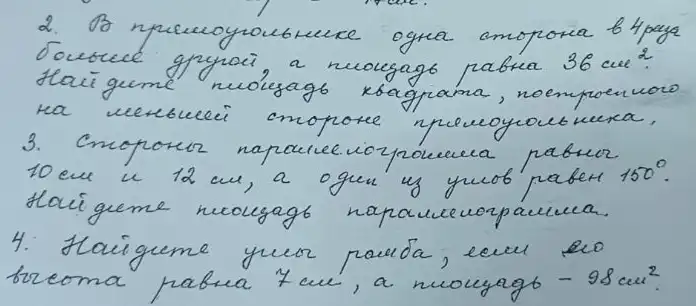 2. В прямоугольнике одна сторона в 4 раза
больше другой, а площадь равна 36 см².
Найдите площадь квадрата, построенного
на меньшей стороне прямоугольника.
3. Стороны параллелограмма равны
10 см и 12 см, а один из углов равен 150°.
Найдите площадь параллелограмма.
4. Найдите углы ромба, если его
высота равна 7 см, а площадь - 98 см².